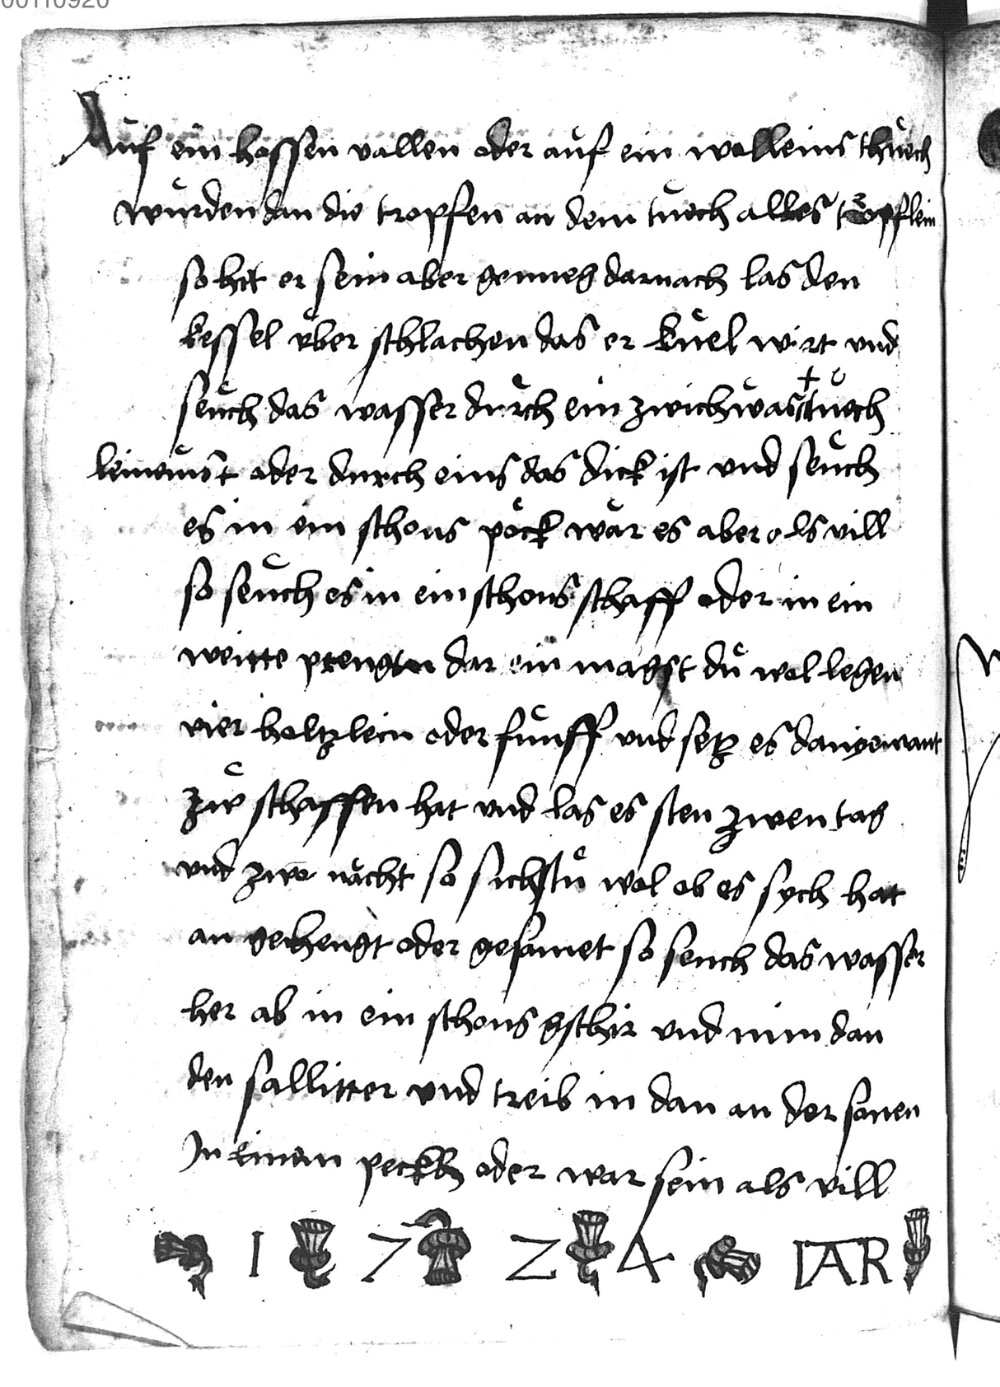 00110920
Auf ein hossen vallen oder auf ein wolleins thuech
wurden dan die tropfen an dem tuech alles tropflein
so hat er sein aber genueg darnach las den
kessel uber schlachen das er kuel wirt und
seuch das wasser durch ein zwichwas tuech
leineins oder durch eins das dick ist und seuch
es in ein schons pöck wär es aber als vill
so seuch es in ein schons schaff oder in ein
weitte prengten dar ein magst du wol legen
vier holtzlein oder funff und setz es dan
zuo schaffen hat und las es sten zwen tag
und zwo nächt so sichstu wol ob es sych hat
an gehengt oder gesamet so seuch das wasser
her ab in ein schons gschir und nim dan
den sallitter und treib in dan an der sonen
In einem peckh oder war sein als vill
1 7 2 4 IAR